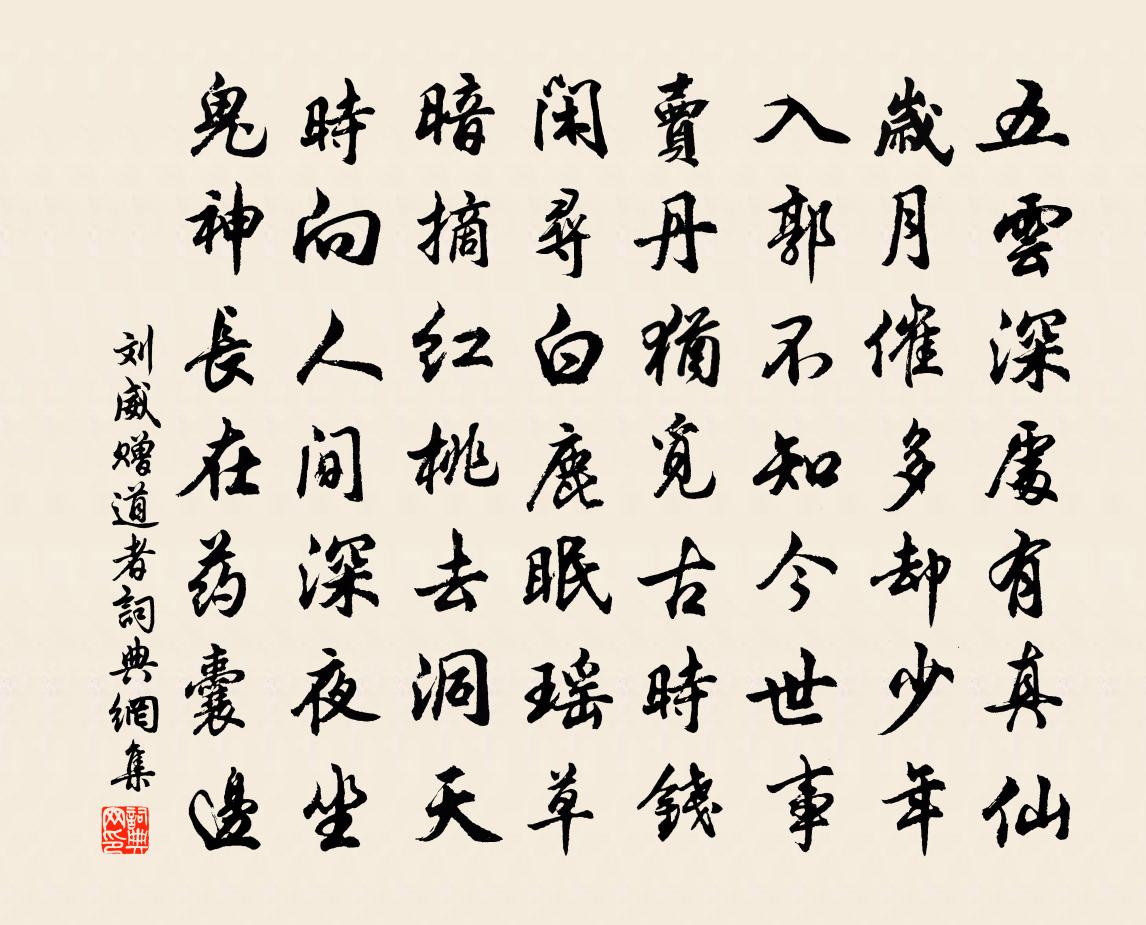 五雲深處有真仙
歲月催多却少年
入郭不知今世事
賣丹猶覓古時錢
閑尋白鹿眠瑶草
暗摘红桃去洞天
時向人間深夜坐
鬼神長在药囊邊
刘威赠道者詞典網集
詞典网印